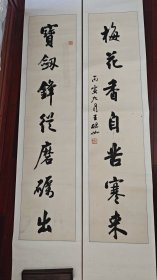 梅花香自苦寒来
丙寅九月王
寶劍鋒從磨礪出